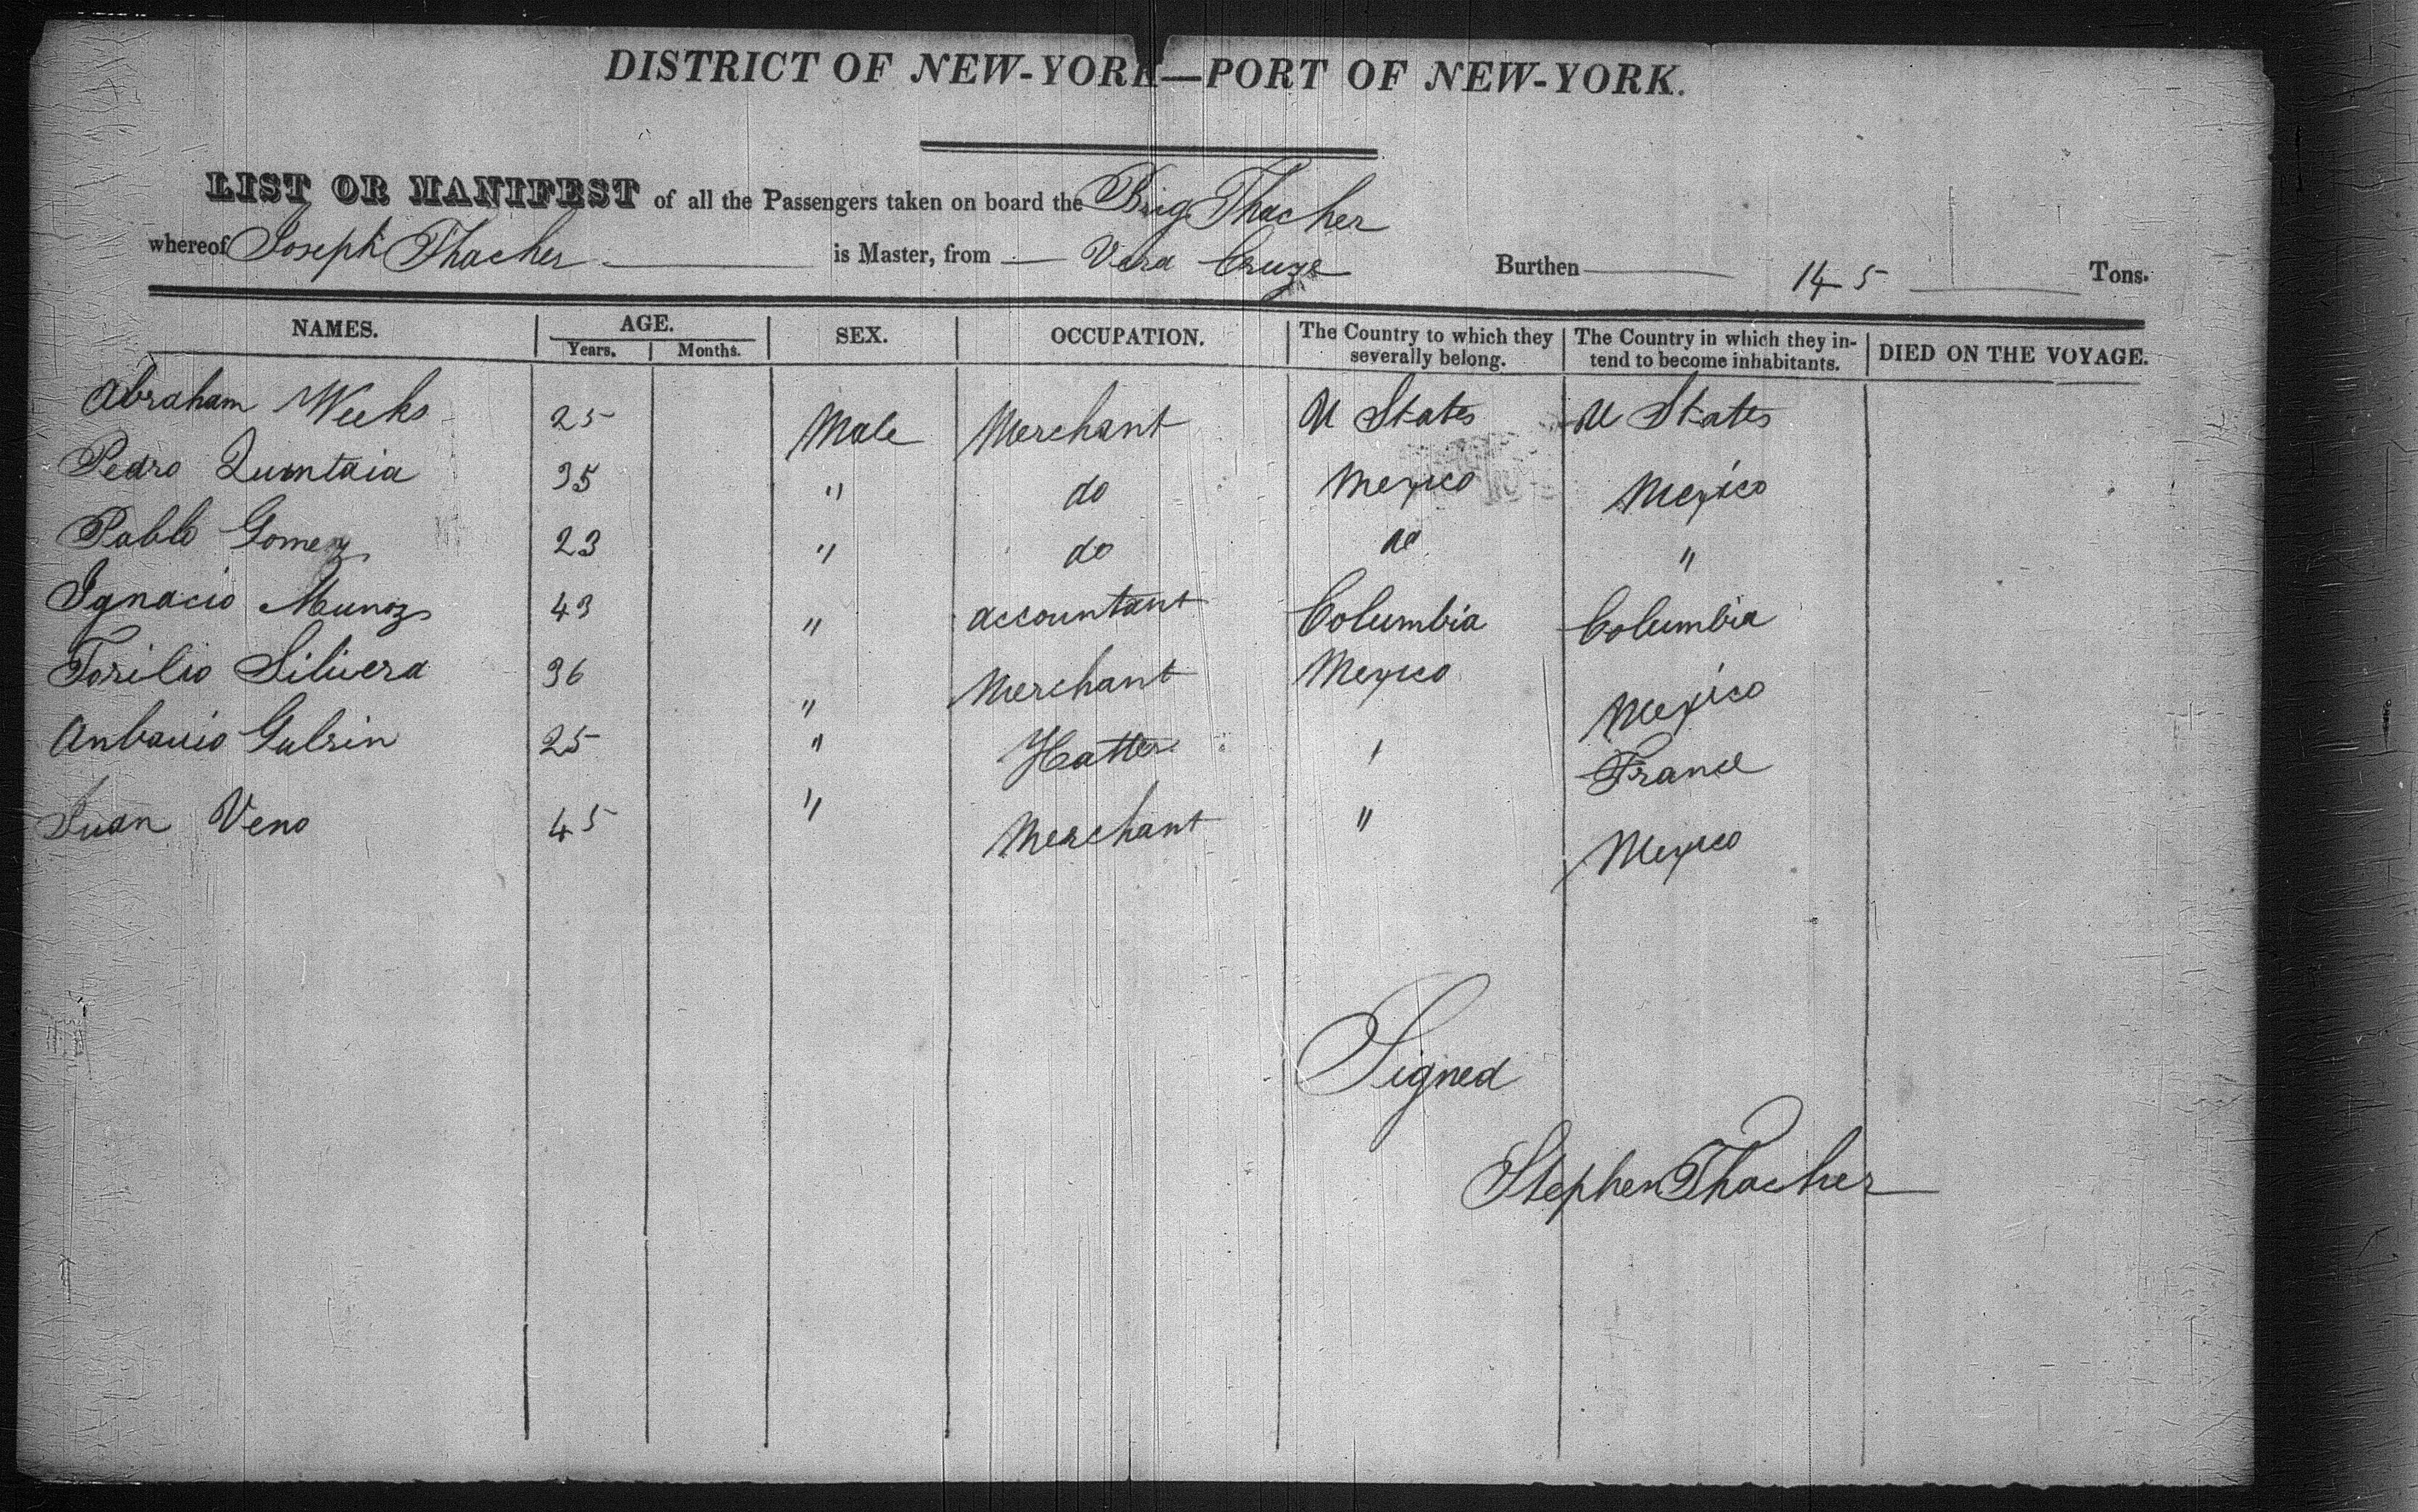 DISTRICT OF NEW-YORK—PORT OF NEW-YORK.
LIST OR MANIFEST of all the Passengers taken on board the Brig Thacher
whereof Joseph Thacher is Master, from Vera Cruze Burthen 145 Tons.
NAMES. AGE. SEX. OCCUPATION. The Country to which they severally belong. The Country in which they intend to become inhabitants. DIED ON THE VOYAGE.
Years. Months.
Abraham Weeks 25 Male Merchant U States U States
Pedro Quintaia 35 " do Mexico Mexico
Pablo Gomez 23 " do do "
Ignacio Munoz 43 " accountant Columbia Columbia
Torilio Silivera 36 " Merchant Mexico Mexico
25 " Hatter " France
Juan Veno 45 " Merchant " Mexico
Signed
Stephen Thacher